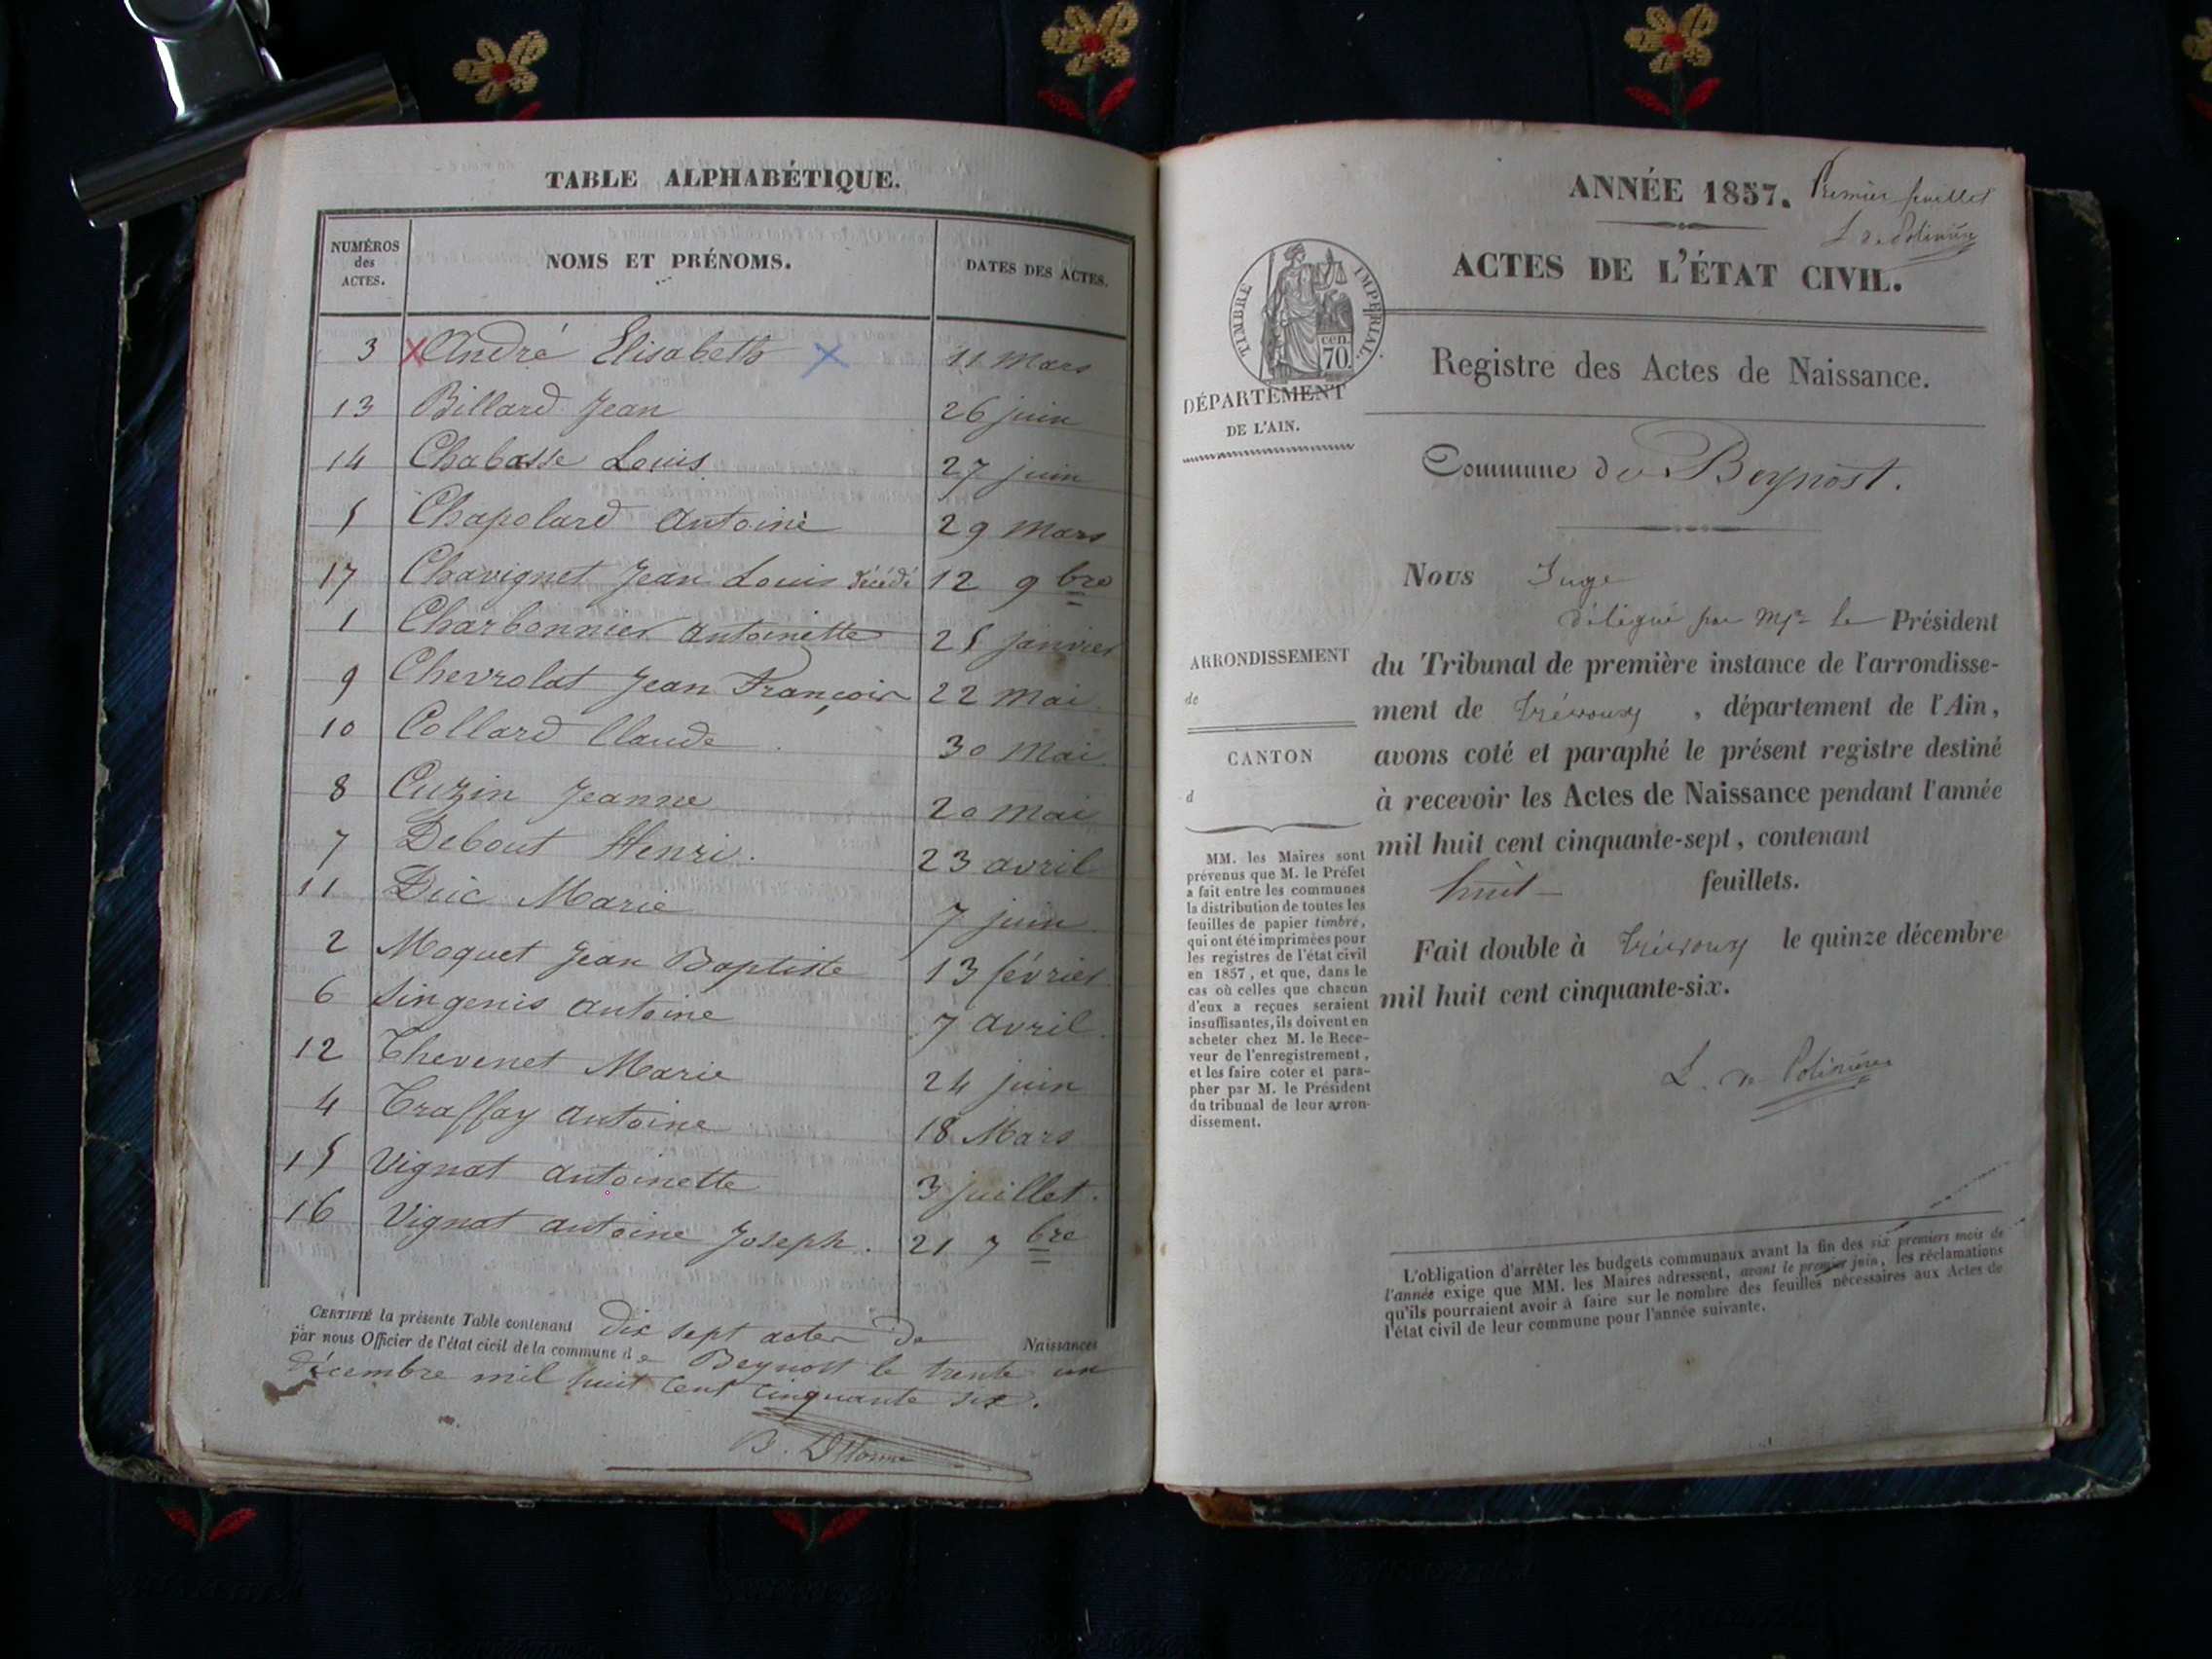 TABLE ALPHABÉTIQUE.
NUMÉROS des ACTES. NOMS ET PRÉNOMS. DATES DES ACTES.
3 André Elisabeth 11 Mars
13 Billard Jean 26 juin
14 Chabasse Louis 27 juin
5 Chapolard Antoine 29 Mars
17 Chavignet Jean Louis décédé 12 9bre
1 Charbonnier Antoinette 25 janvier
9 Chevrolat Jean François 22 Mai
10 Collard Claude 30 Mai
8 Cuzin Jeanne 20 Mai
7 Debout Henri. 23 avril
11 Duc Marie 7 juin
2 Moquet Jean Baptiste 13 février
6 Singenis Antoine 7 avril
12 Thevenet Marie 24 juin
4 Traffay Antoine 18 Mars
15 Vignat Antoinette 3 juillet.
16 Vignat Antoine Joseph. 21 7bre
CERTIFIÉ la présente Table contenant dix sept actes de Naissances
par nous Officier de l'état civil de la commune de Beynost le trente un
décembre mil huit cent cinquante six.
ANNÉE 1857. Premier feuillet
L de Polinière
ACTES DE L'ÉTAT CIVIL.
TIMBRE IMPÉRIAL.
cen.
70
Registre des Actes de Naissance.
DÉPARTEMENT
DE L'AIN.
Commune de Beynost.
Nous Juge
délégué par Mr le Président
ARRONDISSEMENT
de
du Tribunal de première instance de l'arrondisse-
ment de Trévoux, département de l'Ain,
CANTON
d
avons coté et paraphé le présent registre destiné
à recevoir les Actes de Naissance pendant l'année
mil huit cent cinquante-sept, contenant
huit feuillets.
Fait double à Trévoux le quinze décembre
mil huit cent cinquante-six.
L. de Polinière
MM. les Maires sont
prévenus que M. le Préfet
a fait entre les communes
la distribution de toutes les
feuilles de papier timbré,
qui ont été imprimées pour
les registres de l'état civil
en 1857, et que, dans le
cas où celles que chacun
d'eux a reçues seraient
insuffisantes, ils doivent en
acheter chez M. le Rece-
veur de l'enregistrement,
et les faire coter et para-
pher par M. le Président
du tribunal de leur arron-
dissement.
L'obligation d'arrêter les budgets communaux avant la fin des six premiers mois de
l'année exige que MM. les Maires adressent, avant le premier juin, les réclamations
qu'ils pourraient avoir à faire sur le nombre des feuilles nécessaires aux Actes de
l'état civil de leur commune pour l'année suivante.